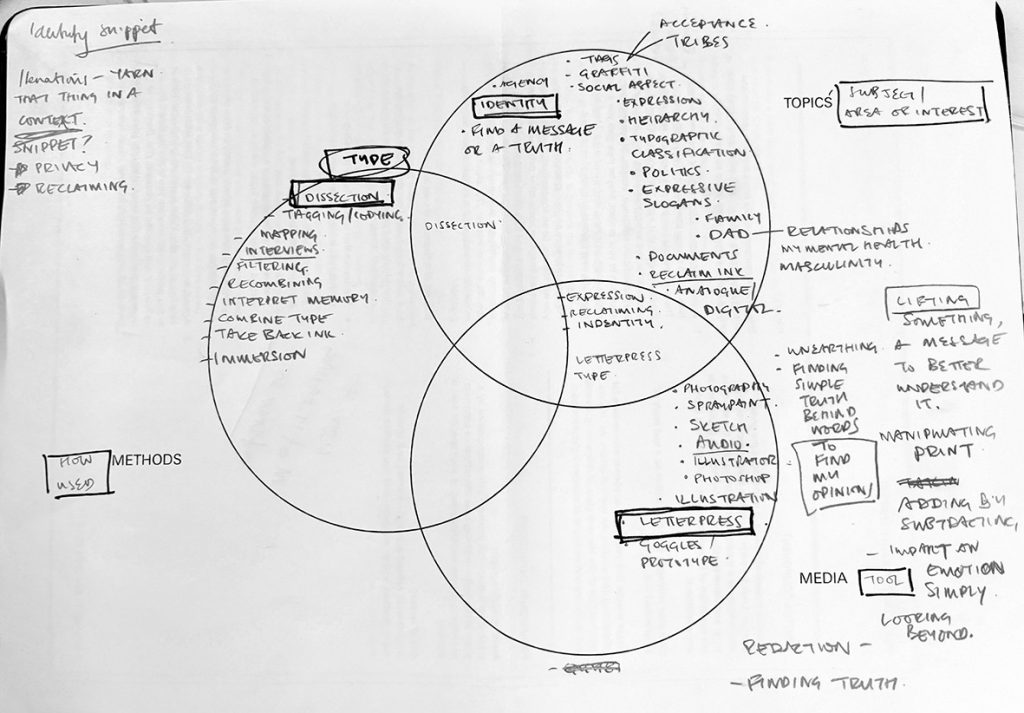 Identify snippet
Iterations - YARN
THAT THING IN A
CONTEXT.
SNIPPET?
PRIVACY
RECLAIMING.
ACCEPTANCE.
TRIBES
- TAGS
- GRAFFITI
• SOCIAL ASPECT.
• AGENCY
IDENTITY
• FIND A MESSAGE
OR A TRUTH.
• EXPRESSION
• HEIRARCHY.
• TYPOGRAPHIC
CLASSIFICATION
• POLITICS.
• EXPRESSIVE
SLOGANS.
• FAMILY
• DAD — RELATIONSHIP HAS
MY MENTAL HEALTH.
MASCULINITY.
• DOCUMENTS
• RECLAIM INK
• ANALOGUE/
DIGITAL.
TOPICS
SUBJECT/
AREA OF INTEREST
TYPE
- DISSECTION.
- TAGGING/COPYING.
- MAPPING
- INTERVIEWS.
- FILTERING.
- RECOMBINING
- INTERPRET MEMORY.
- COMBINE TYPE
- TAKE BACK INK.
- IMMERSION
DISSECTION
- EXPRESSION.
- RECLAIMING
- INDENTITY.
LETTERPRESS
TYPE.
HOW
USED
METHODS
• PHOTOGRAPHY
• SPRAYPAINT.
• SKETCH
• AUDIO
• ILLUSTRATOR
• PHOTOSHOP
• ILLUSTRATION
• LETTERPRESS
• GOGGLES/
PROTOTYPE.
• UNEARTHING.
• FINDING
SIMPLE
TRUTH
BEHIND
WORDS
TO
FIND
MY
OPINION/
LIFTING
SOMETHING,
A MESSAGE
TO BETTER
UNDERSTAND
IT.
MANIPULATING
PRINT.
ADDING BY
SUBTRACTING,
- IMPART AN
EMOTION
SIMPLY.
LOOKING
BEYOND.
MEDIA
TOOL
REDACTION -
- FINDING TRUTH.